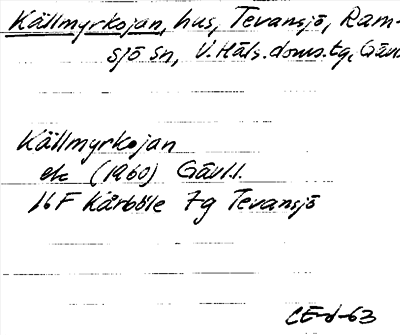 Källmyrkojan, hus, Tevansjö, Ram-
sjö sn, V. Häls. doms.tg, Gävl
Källmyrkojan
ek (1960) Gävl.l.
16F Kårböle 7g Tevansjö
CE-d-63